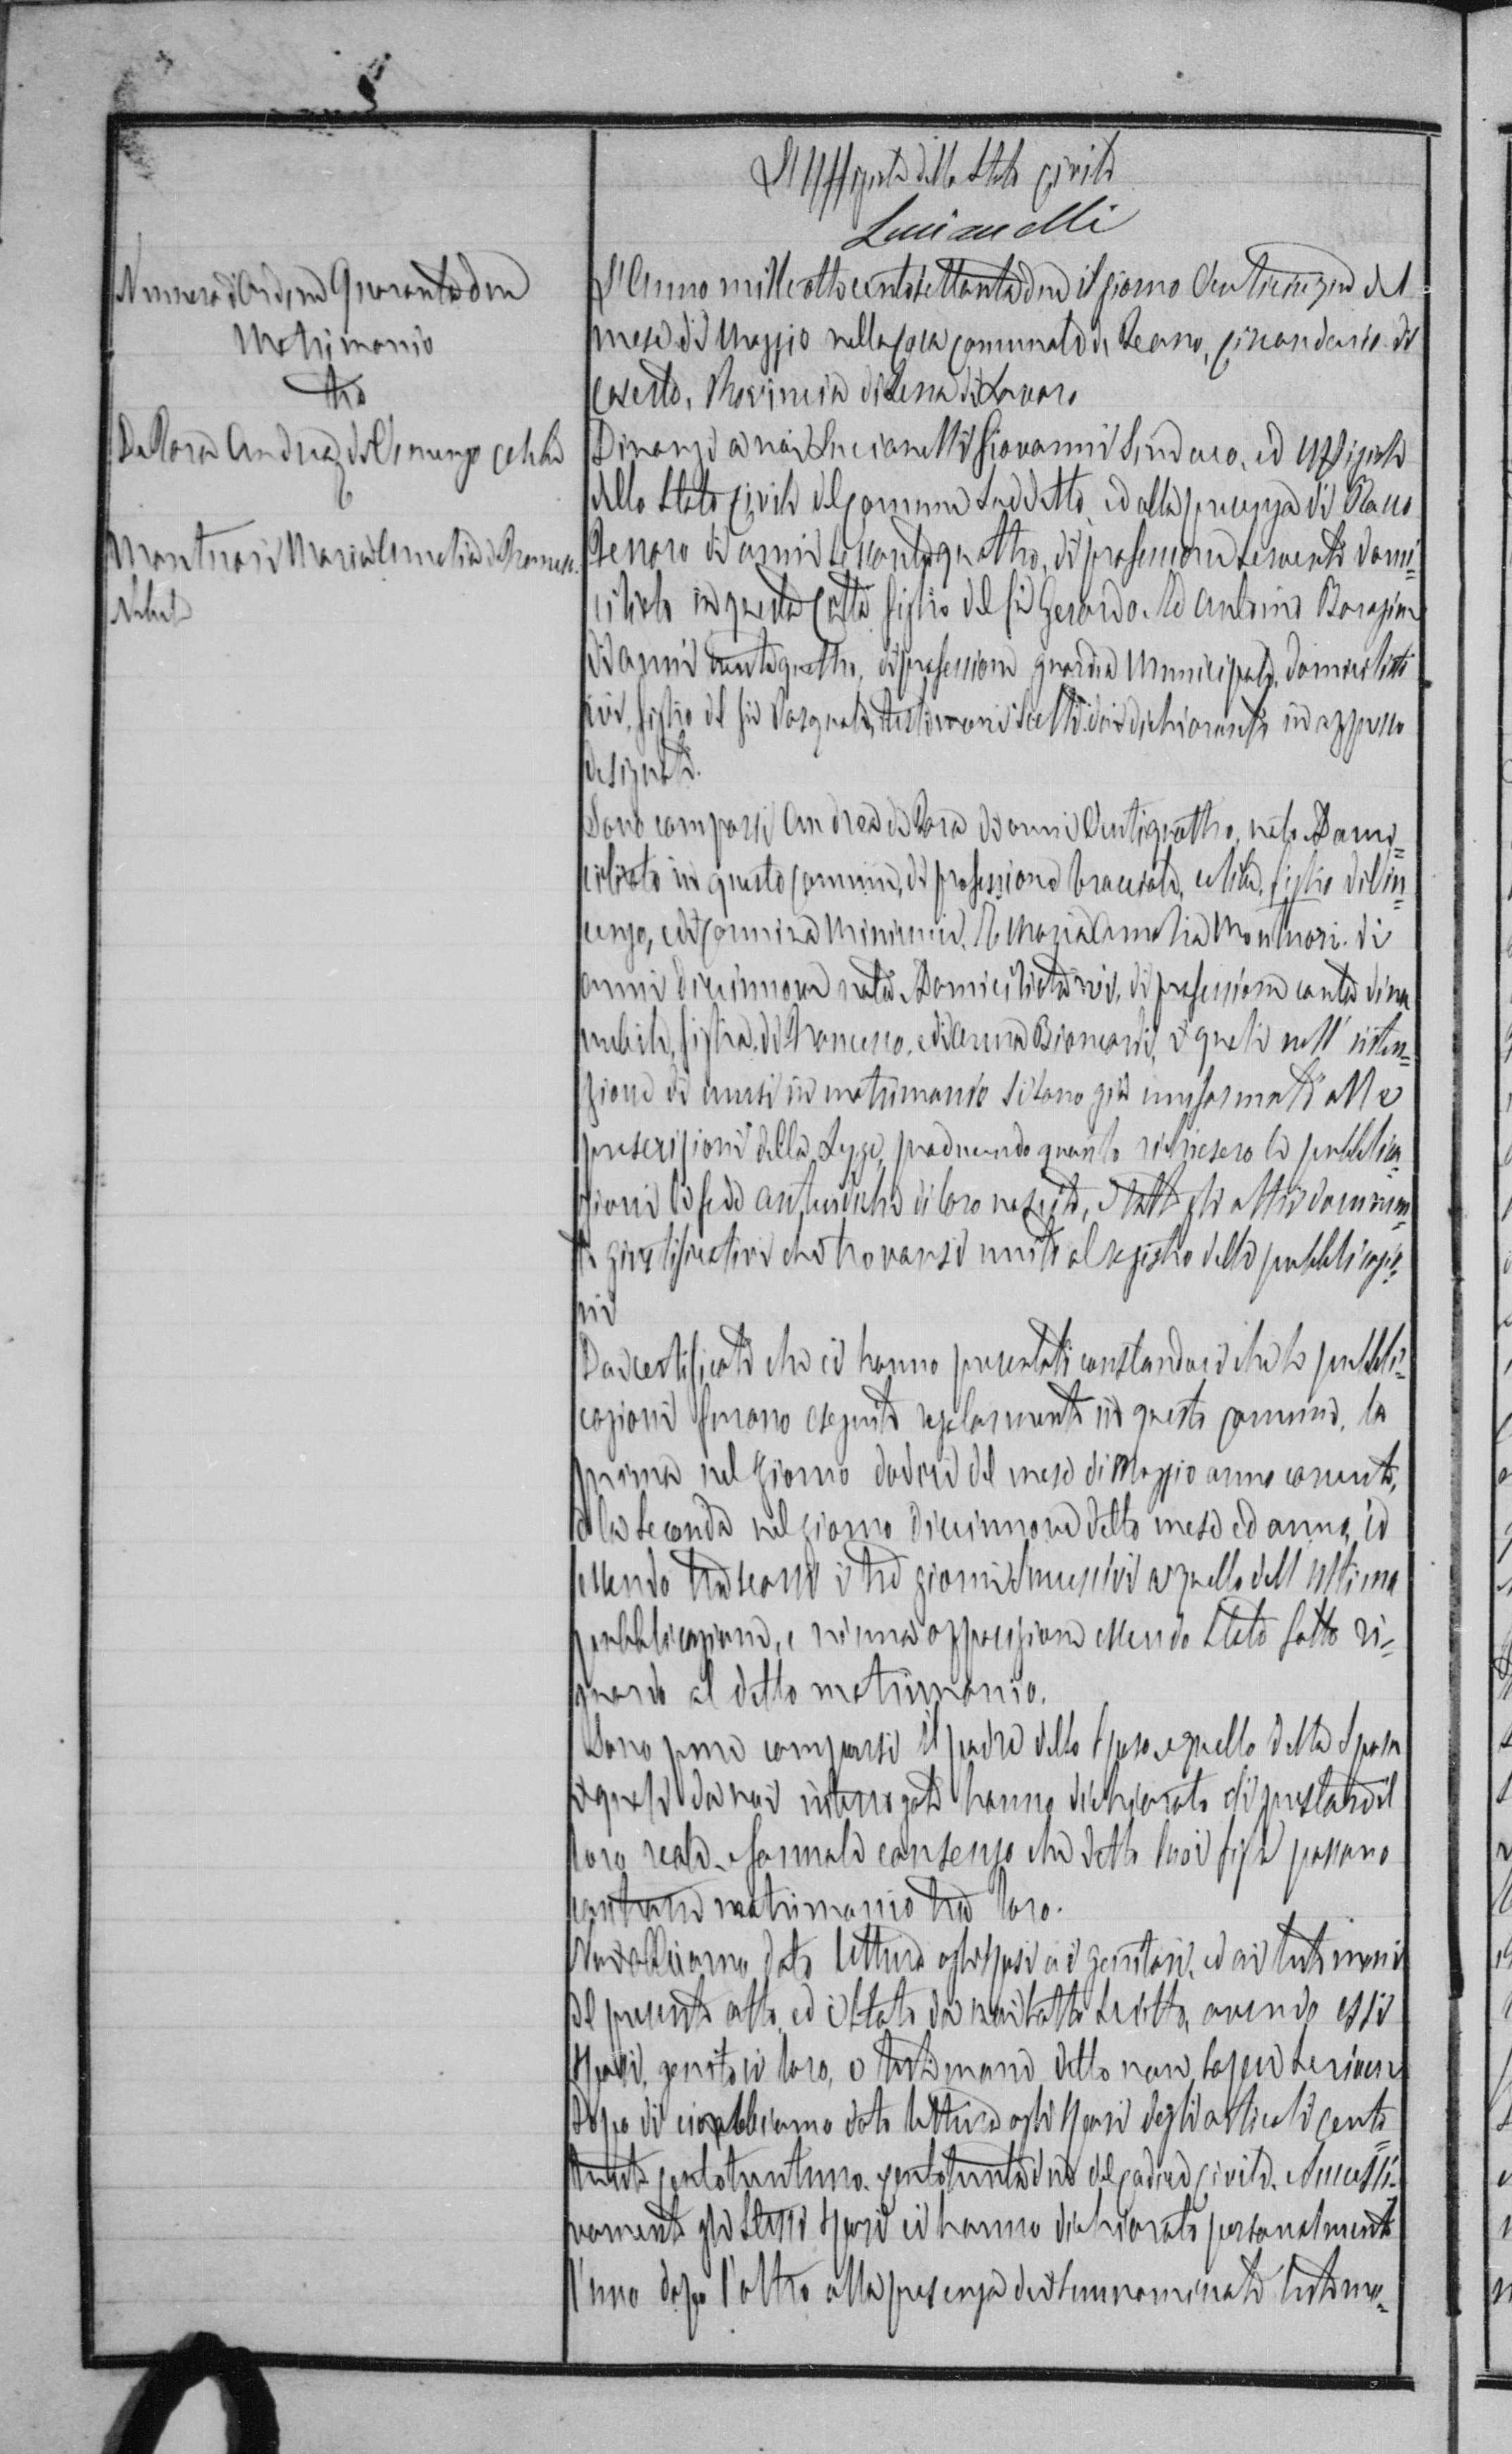 L'Uffiziale dello Stato Civile
Lucianelli
Numero d'Ordine Quarantadue
Matrimonio
tra
De Rosa Andrea di Vincenzo celibe
e
Montuori Maria Amelia di Francesco
nubile
L'Anno milleottocentosettantadue il giorno Venticinque del
mese di Maggio nella Casa Comunale di Teano, Circondario di
Caserta, Provincia di Terra di Lavoro
Dinanzi a noi Lucianelli Giovanni Sindaco, ed Uffiziale
dello Stato Civile del Comune suddetto, ed alla presenza di Rocco
di anni sessantaquattro, di professione servente domi=
ciliato in questa Città figlio del fu Gerardo. Ed Antonio
di anni ventiquattro, di professione guardia Municipale, domiciliato
ivi, figlio del fu Pasquale, testimoni scelti dai dichiaranti in appresso
designati.
Sono comparsi Andrea de Rosa di anni Ventiquattro, nato e Domi=
ciliato in questo Comune, di professione bracciale, celibe, figlio di Vin=
cenzo, e di Carmina. E Maria Amelia Montuori di
anni diecinnove nata e Domiciliata ivi, di professione contadina
nubile, figlia di Francesco, e di Anna Biancardi, i quali nell'inten=
zione di unirsi in matrimonio si sono già uniformati alle
prescrizioni della Legge, producendo quanto richiesero le pubblica=
zioni le fedi autentiche di loro nascita, e tutti gli altri documen=
ti giustificativi che trovansi uniti al registro delle pubblicazio=
ni
Dai certificati che ci hanno presentati constandoci che le pubbli=
cazioni furono eseguite regolarmente in questo Comune, la
prima nel giorno dodici del mese di Maggio anno corrente,
e la seconda nel giorno diecinnove detto mese ed anno, ed
essendo trascorsi i tre giorni successivi a quello dell'ultima
pubblicazione, e niuna opposizione essendo stata fatta ri=
guardo al detto matrimonio.
Sono pure comparsi il padre dello sposo, e quello della Sposa
i quali da noi interrogati hanno dichiarato di prestare il
loro reale, e formale consenso che detti suoi figli possano
contrarre matrimonio tra loro.
Noi abbiamo dato lettura agli sposi ai genitori, ed ai testimoni
del presente atto, ed è stato da noi sottoscritto, avendo essi
sposi, genitori loro, e testimoni detto non saper scrivere
Dopo di ciò abbiamo dato lettura agli Sposi degli articoli cento
trenta, centotrentuno, centotrentadue del Codice Civile. e Successi=
vamente gli stessi sposi ci hanno dichiarato personalmente
l'uno dopo l'altro alla presenza dei sunnominati testimo=